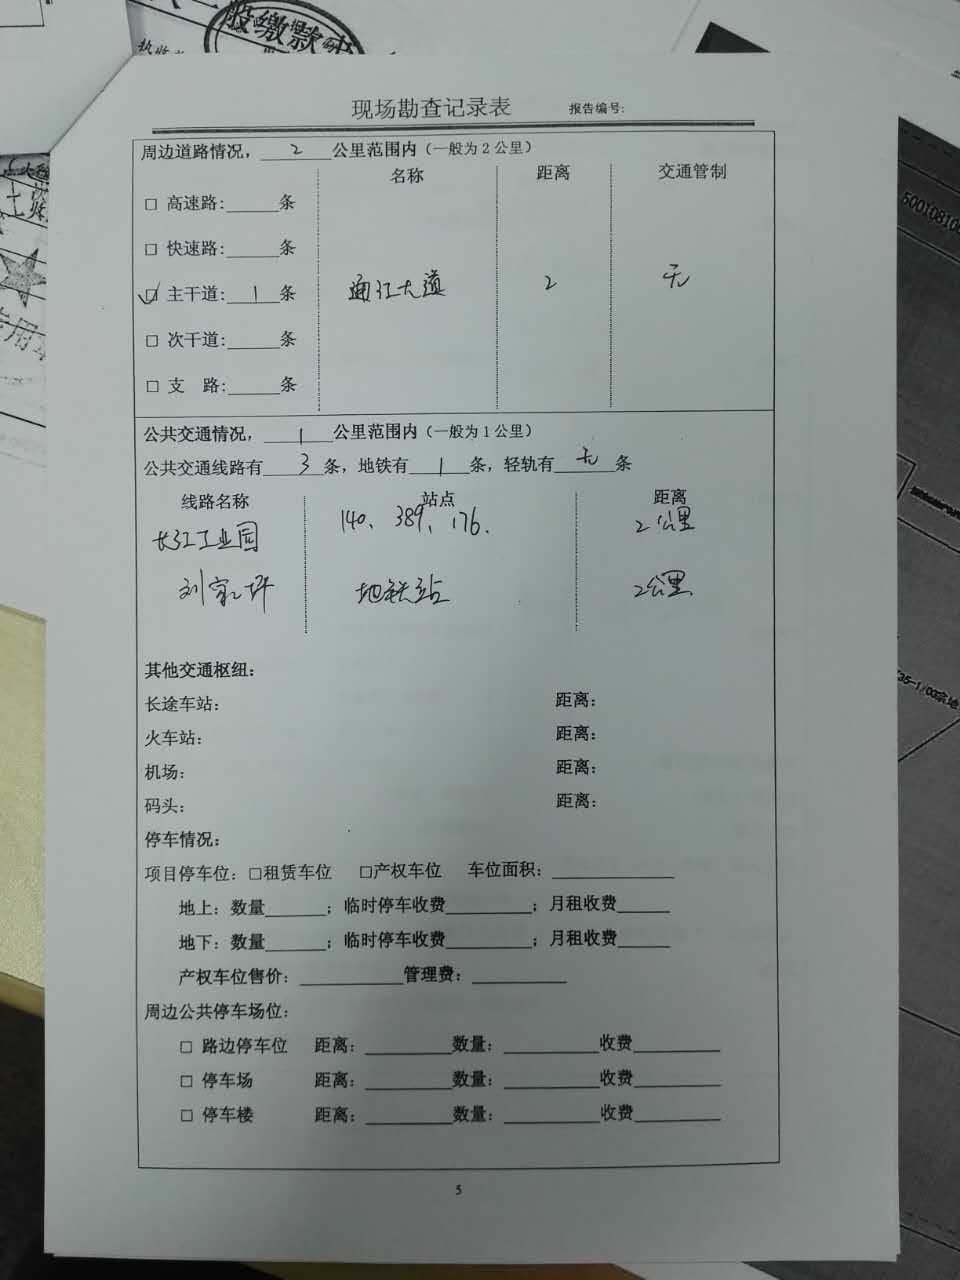 股缴款
现场勘查记录表 报告编号:
周边道路情况，2公里范围内（一般为2公里）
名称 距离 交通管制
□ 高速路:______条
□ 快速路:______条
☑ 主干道: 1 条 通江大道 2 无
□ 次干道:______条
□ 支 路:______条
公共交通情况，1公里范围内（一般为1公里）
公共交通线路有 3 条，地铁有 1 条，轻轨有 无 条
线路名称 站点 距离
长江工业园 140、389、176. 2公里
刘家坪 地铁站 2公里
其他交通枢纽：
长途车站： 距离：
火车站： 距离：
机场： 距离：
码头： 距离：
停车情况：
项目停车位：□租赁车位 □产权车位 车位面积：______
地上：数量______；临时停车收费______；月租收费______
地下：数量______；临时停车收费______；月租收费______
产权车位售价：______管理费：______
周边公共停车场位：
□ 路边停车位 距离：______数量：______收费______
□ 停车场 距离：______数量：______收费______
□ 停车楼 距离：______数量：______收费______
5